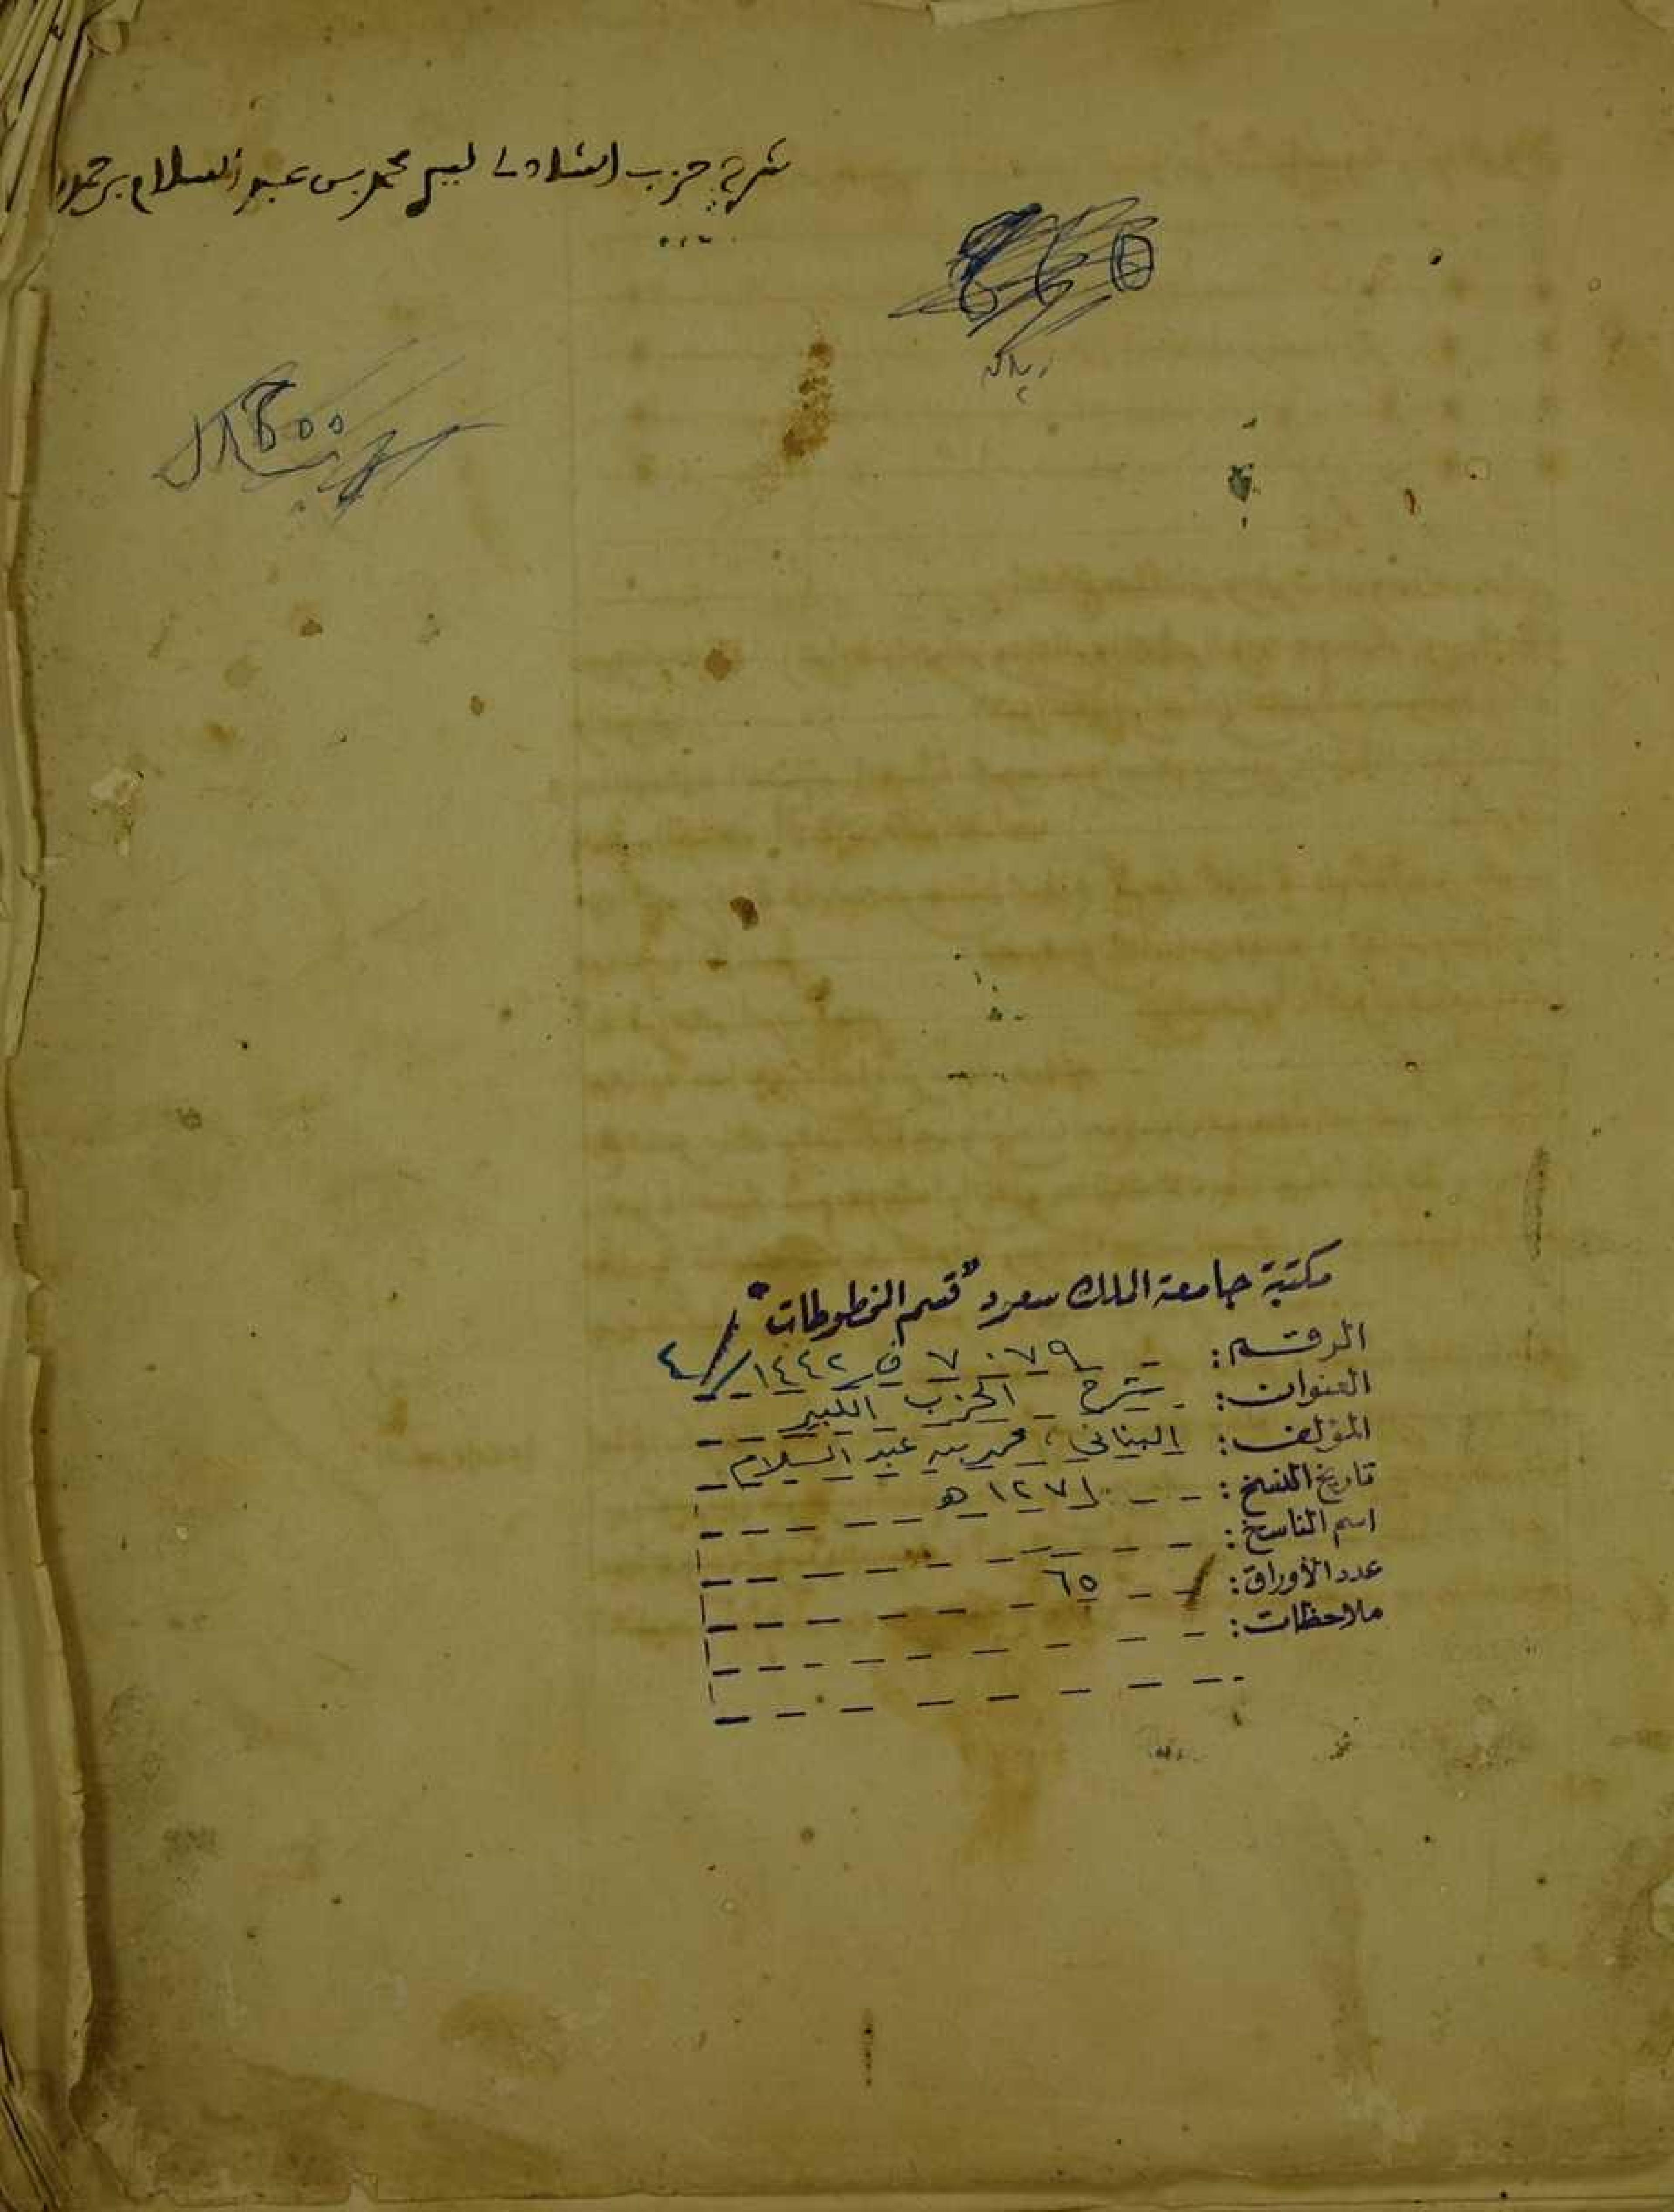 شرح حزب الشاذلي لسيد محمد بن عبد السلام بن حمدون
مكتبة جامعة الملك سعود "قسم المخطوطات"
الرقم: ٧٠٧٩ ف ١٤٤٢/٤
العنوان: شرح الحزب الكبير
المؤلف: البناني، محمد بن عبد السلام
تاريخ النسخ: ١٢٧١ هـ
اسم الناسخ:
عدد الأوراق: ٦٥
ملاحظات: